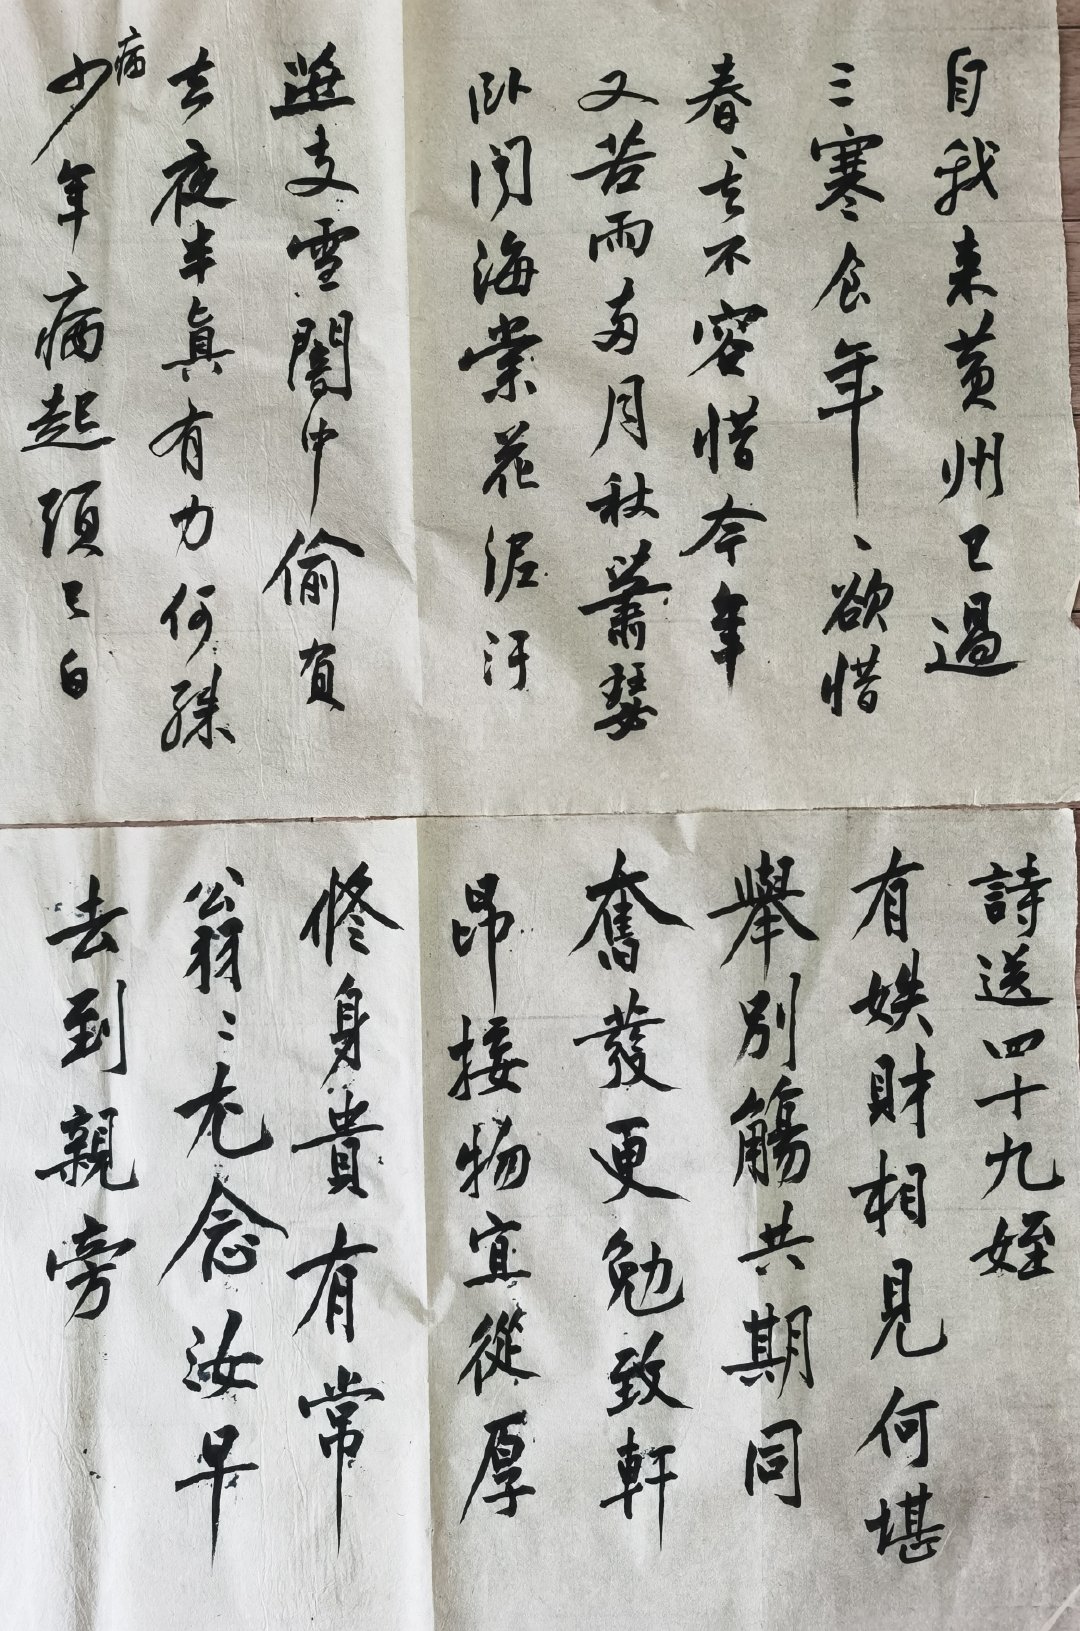 自我来黄州已過
三寒食年〻欲惜
春〻去不容惜今年
又苦雨两月秋蕭瑟
卧闻海棠花泥汙
燕支雪闇中偷負
去夜半真有力何殊
少年病起頭已白
病
詩送四十九姪
有姪財相見何堪
舉別觴共期同
奮發更勉致軒
昂接物宜從厚
修身貴有常
翁〻尤念汝早
去到親旁